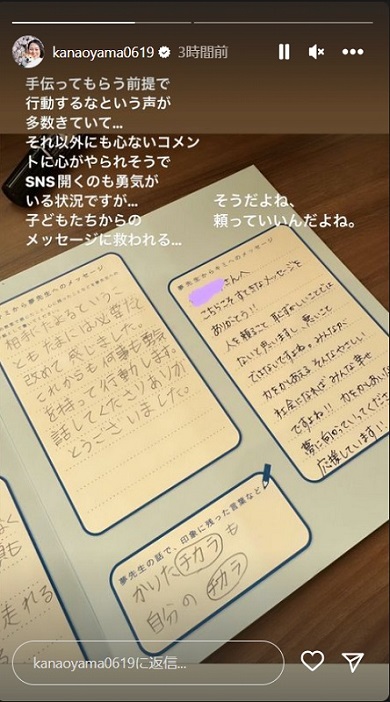 kanaoyama0619 3時間前
手伝ってもらう前提で
行動するなという声が
多数きていて...
それ以外にも心ないコメン
トに心がやられそうで
SNS開くのも勇気が
いる状況ですが...
子どもたちからの
メッセージに救われる...
そうだよね、
頼っていいんだよね。
夢先生へのメッセージ
相手にたよるというこ
ともたまには必要だと
改めて感じました。
これからも何事も勇気
を持って行動します。
話してくださりありが
とうございました。
夢先生からキミへのメッセージ
さんへ
こちらこそすてきなメッセージを
ありがとう!!
人を頼ることって恥ずかしいことでは
ないと思いますし、悪いこと
ではないですよね。みんなが
力をかしあえるそんなやさしい
社会になればみんな幸せ
ですよね!!
夢に向かっていってくださ
応援しています!!
夢先生の話で、印象に残った言葉など
かりたチカラも
自分のチカラ
走れる
kanaoyama0619に返信...